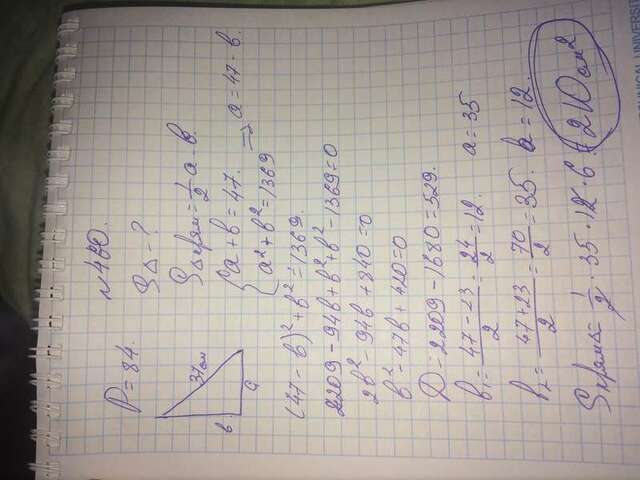 №460.
P = 84.
S△ - ?
37см
в
a
S△прям = 1/2 a · в.
{ a + в = 47.
a² + в² = 1369
=> a = 47 - в.
(47 - в)² + в² = 1369.
2209 - 94в + в² + в² - 1369 = 0
2в² - 94в + 840 = 0
в² - 47в + 420 = 0
D = 2209 - 1680 = 529.
в₁ = (47 - 23)/2 = 24/2 = 12. a = 35
в₂ = (47 + 23)/2 = 70/2 = 35. a = 12.
Sпрям△ = 1/2 · 35 · 12 · 6 = 210 см²
UNIVERSITY